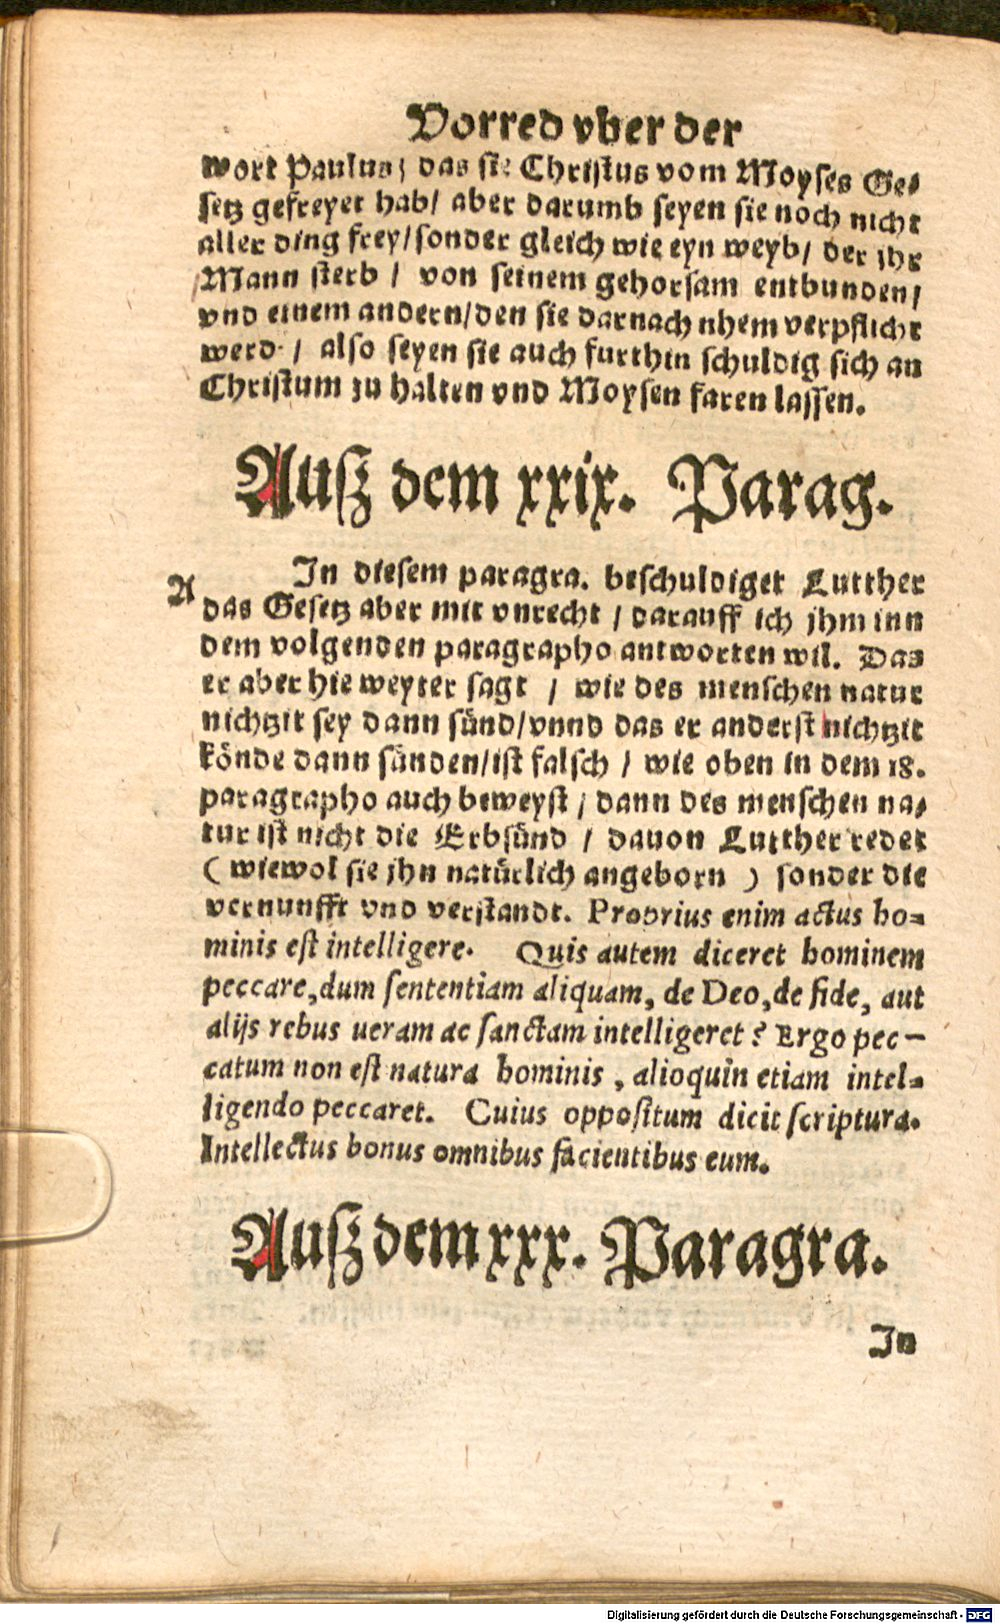 Vorred vber der
wort Paulus/ das sie Christus vom Moyses Ge-
setz gefreyet hab/ aber darumb seyen sie noch nicht
aller ding frey/sonder gleich wie eyn weyb/ der jhr
Mann sterb / von seinem gehorsam entbunden/
vnd einem andern/den sie darnach nhem verpflicht
werd / also seyen sie auch furthin schuldig sich an
Christum zu halten vnd Moysen faren lassen.
Ausz dem xxix. Parag.
A
In diesem paragra. beschuldiget Lutther
das Gesetz aber mit vnrecht / darauff ich jhm inn
dem volgenden paragrapho antworten wil. Das
er aber hie weyter sagt / wie des menschen natur
nichtzit sey dann sünd/vnnd das er anderst nichtzit
könde dann sünden/ist falsch / wie oben in dem 18.
paragrapho auch beweyst / dann des menschen na-
tur ist nicht die Erbsünd / dauon Lutther redet
( wiewol sie jhn natürlich angeborn ) sonder die
vernunfft vnd verstandt. Proprius enim actus ho-
minis est intelligere. Quis autem diceret hominem
peccare, dum sententiam aliquam, de Deo, de fide, aut
alijs rebus ueram ac sanctam intelligeret? Ergo pec-
catum non est natura hominis, alioquin etiam intel-
ligendo peccaret. Cuius oppositum dicit scriptura.
Intellectus bonus omnibus facientibus eum.
Ausz dem xxx. Paragra.
In
Digitalisierung gefördert durch die Deutsche Forschungsgemeinschaft - DFG